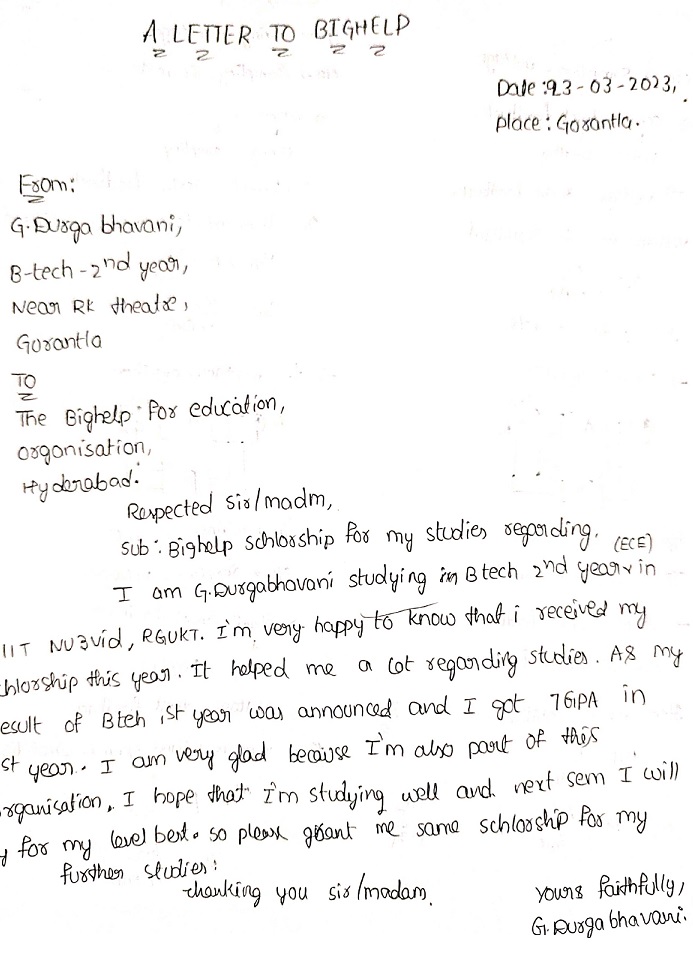 A LETTER TO BIGHELP
Date : 23-03-2023,
place : Gorantla.
From:
G. Durga bhavani,
B-tech - 2nd year,
Near RK theatre,
Gorantla
TO
The Bighelp for education,
organisation,
Hyderabad.
Respected sir/madm,
sub : Bighelp schlorship for my studies regarding.
(ECE)
I am G. Durgabhavani studying in B tech 2nd year in
IIT NUZvid, RGUKT. I'm very happy to know that i received my
hlorship this year. It helped me a lot regarding studies. As my
esult of Bteh ist year was announced and I got 7GPA in
st year. I am very glad because I'm also part of this
rganisation, I hope that I'm studying well and next sem I will
y for my level best. so please grant me same schlorship for my
further studies:
thanking you sir/madam.
yours faithfully,
G. Durga bhavani.